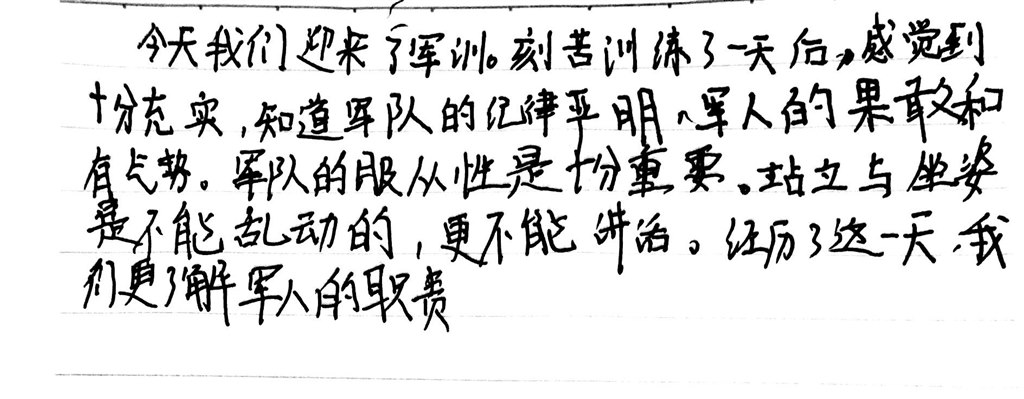 今天我们迎来了军训。刻苦训练了一天后,感觉到
十分充实,知道军队的纪律严明、军人的果敢和
有气势。军队的服从性是十分重要。站立与坐姿
是不能乱动的,更不能讲话。经历了这一天,我
们更了解军人的职责